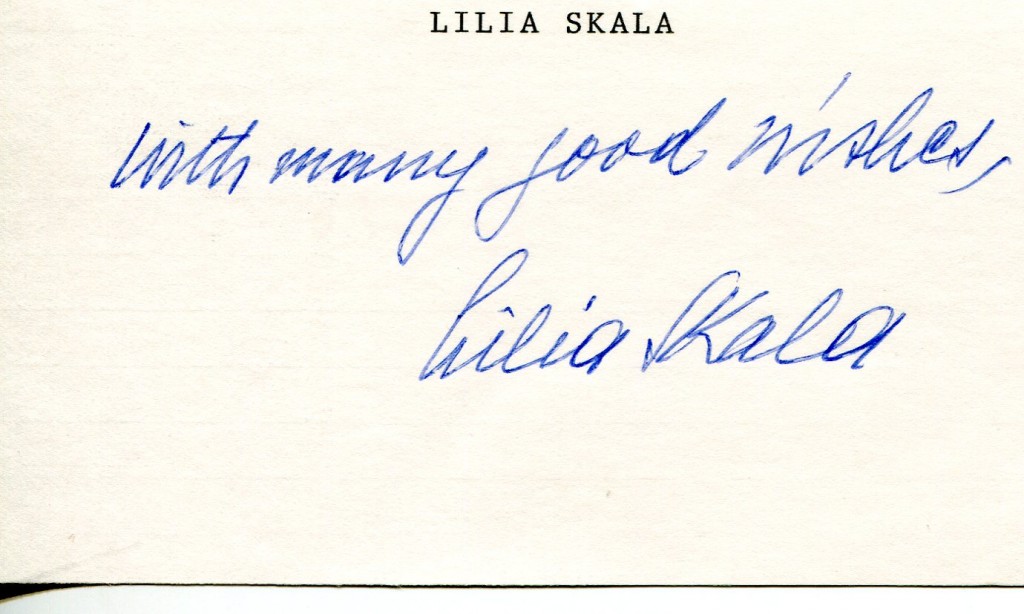 LILIA SKALA
With many good wishes,
Lilia Skala